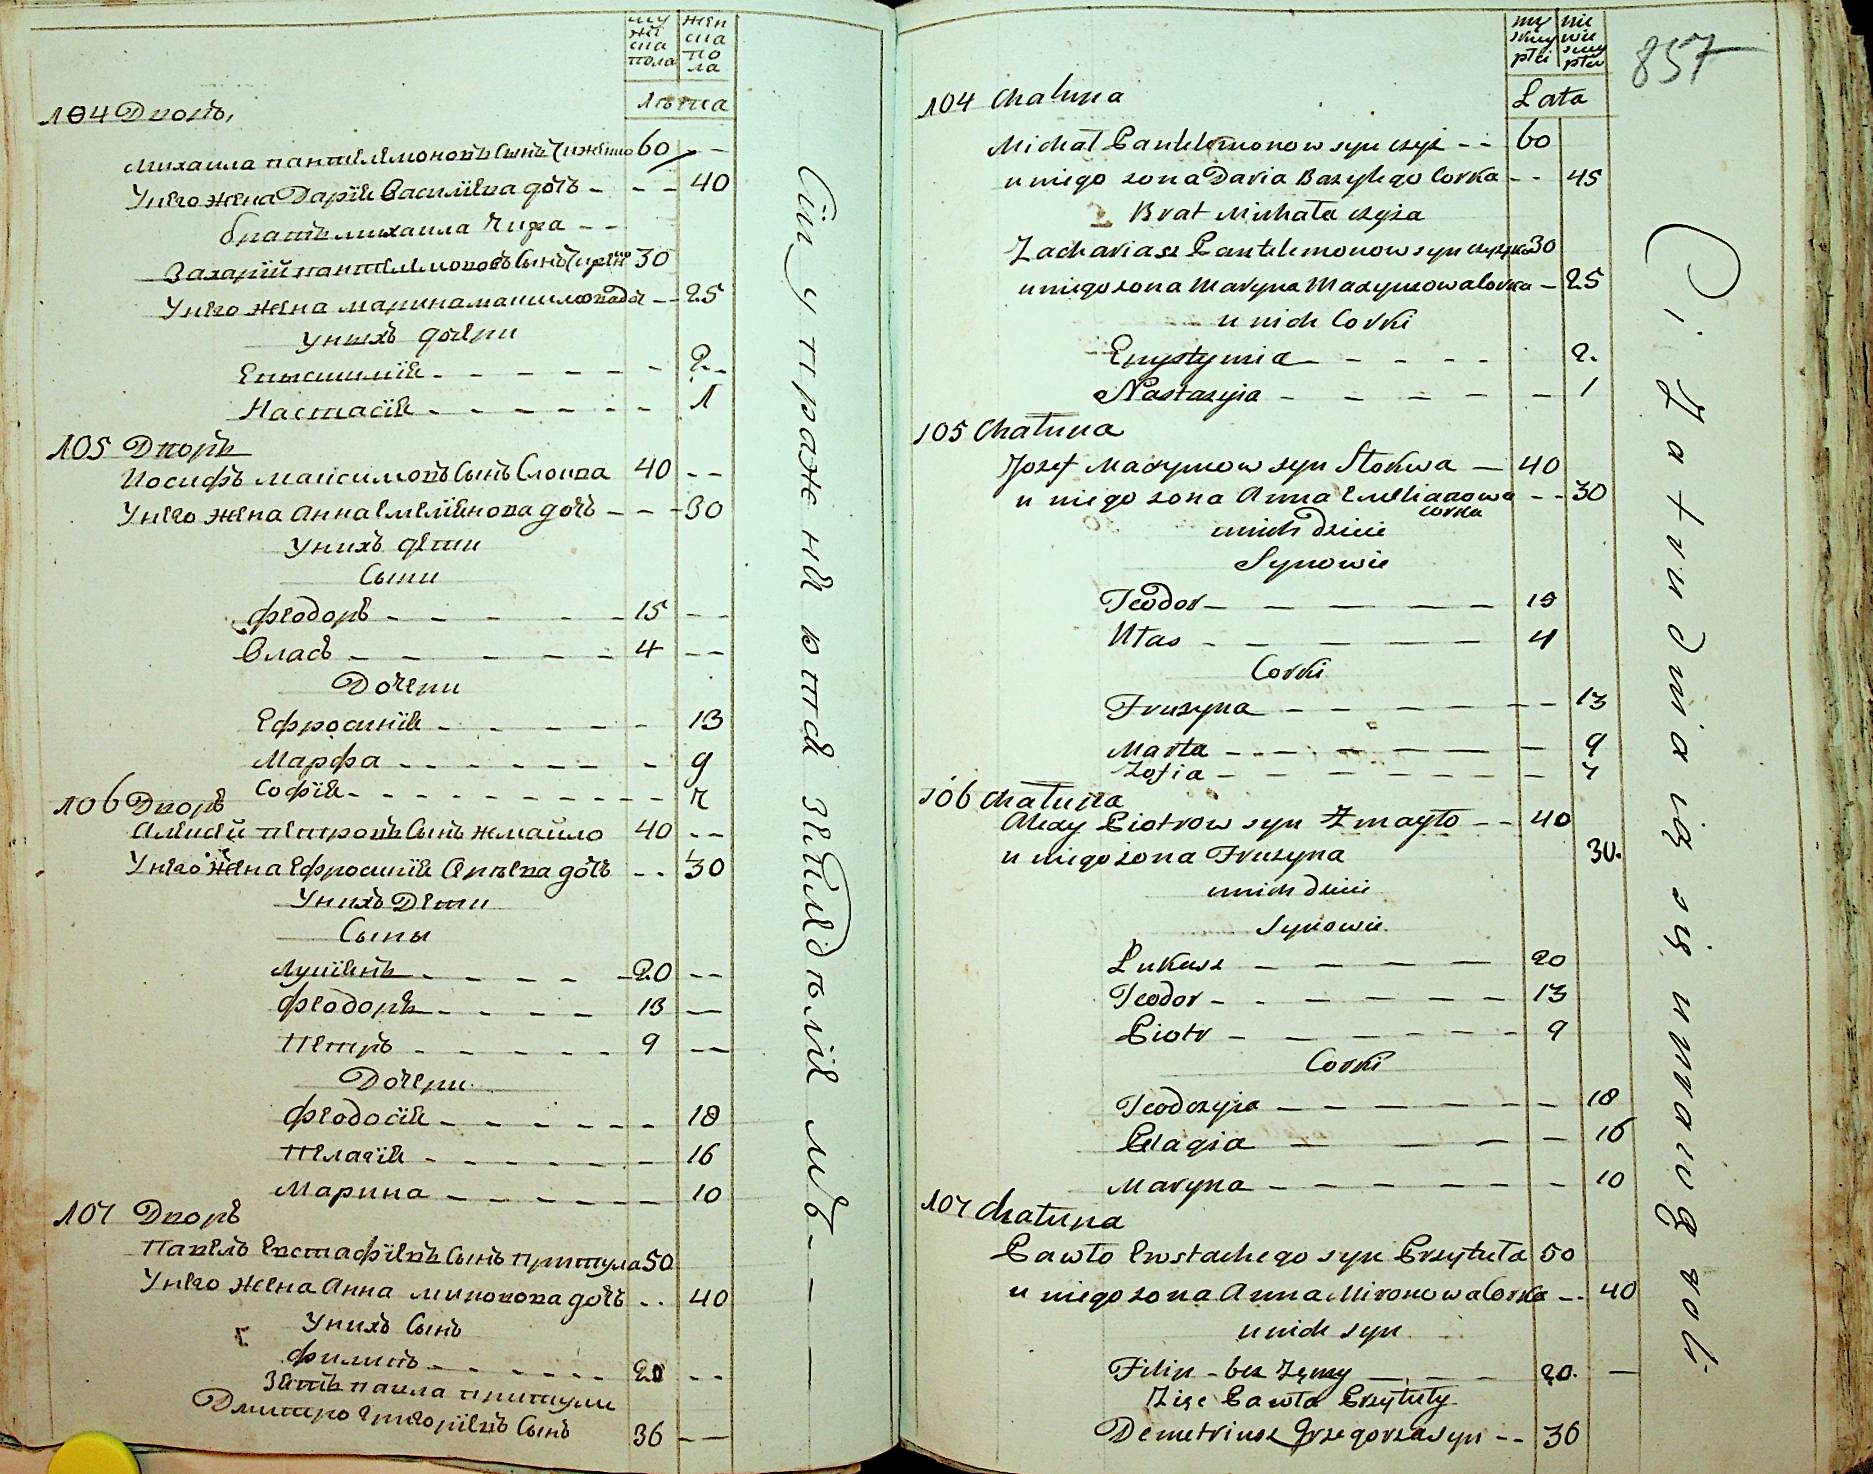 му
же
ска
пола
жен
ска
по
ла
Лѣта
104 Дворъ,
Михаила Пантелемоновъ Сынъ 60 - -
У него жена Дарїя Василїева дочь - - - 40
братъ михаила Чижа - -
Захарїй пантелемоновъ Сынъ 30
У него жена марина максимова до - - 25
У нихъ дочери
Епистимїя - - - - - - - 2 -
Настасїя - - - - - - 1
105 Дворъ
Иосифъ максимовъ Сынъ Слоква 40 - -
У него жена Анна Емелїянова дочь - - - 30
У нихъ дѣти
Сыни
феодоръ - - - - - - 15 - -
Власъ - - - - - - 4 - -
Дочери
Ефросинїя - - - - - - 13
Марфа - - - - - - - 9
Софїя - - - - - - - - - - 7
106 Дворъ
Алексѣй петровъ Сынъ жмайло 40 - -
У него жена Ефросинїя дочь - - 30
У нихъ Дети
Сыны
Лукїянъ - - - - - 20 - -
феодоръ - - - - - 13 —
Петръ - - - - - - 9 - -
Дочери
феодосїя - - - - - - 18
Пелагїя - - - - - - 16
Марина - - - - - - 10
107 Дворъ
Павелъ Евстафїевъ Сынъ Притула 50
У него жена Анна миронова дочь - - 40
У нихъ Сынъ
филипъ - - - - - - 20 - -
Зять павла притули
Дмитро Григорїевъ Сынъ 36 - -
Сїи упражняются земледелїемъ - - —
mę
skiey
płci
nie
wie
sciey
płci
857
Lata
104 Chałupa
Michał Pantelemonow syn czyż - - 60
u niego zona Daria Bazylego Corka - - 45
Brat Michała czyża
Zachariasz Pantelemonow syn 30
u niego zona Maryna Maxymowa Corka - 25
u nich Corki
Epystymia - - - - - 2.
Nastazyia - - - - - - 1
105 Chałupa
Jozef Maxymow syn Słokwa — 40
u niego zona Anna Emeliianowa - - 30
corka
u nich dzieci
Synowie
Teodor - - - - - - 15
Włas - - - - - - 4
Corki
Fruzyna - - - - - - - 13
Marta - - - - - - - 9
Zofia - - - - - - - - 7
106 Chałupa
Alexy Piotrow syn Zmayło - - 40
u niego żona Fruzyna 30.
u nich dzieci
Synowie.
Łukasz - - - - - 20
Teodor - - - - - - 13
Piotr - - - - - - 9
Corki
Teodozyia - - - - - - 18
Pelagia - - - - 16
Maryna - - - - - - 10
107 Chałupa
Pawło Ewstachego syn Przytuła 50
u niego zona Anna Mironowa Corka - - 40
u nich syn
Filip - bez żęny - - - 20. —
Zięc Pawła Przytuły
Demetriusz Grzegorza syn - - 36
Ci Zatrudniaią się uprawą roli